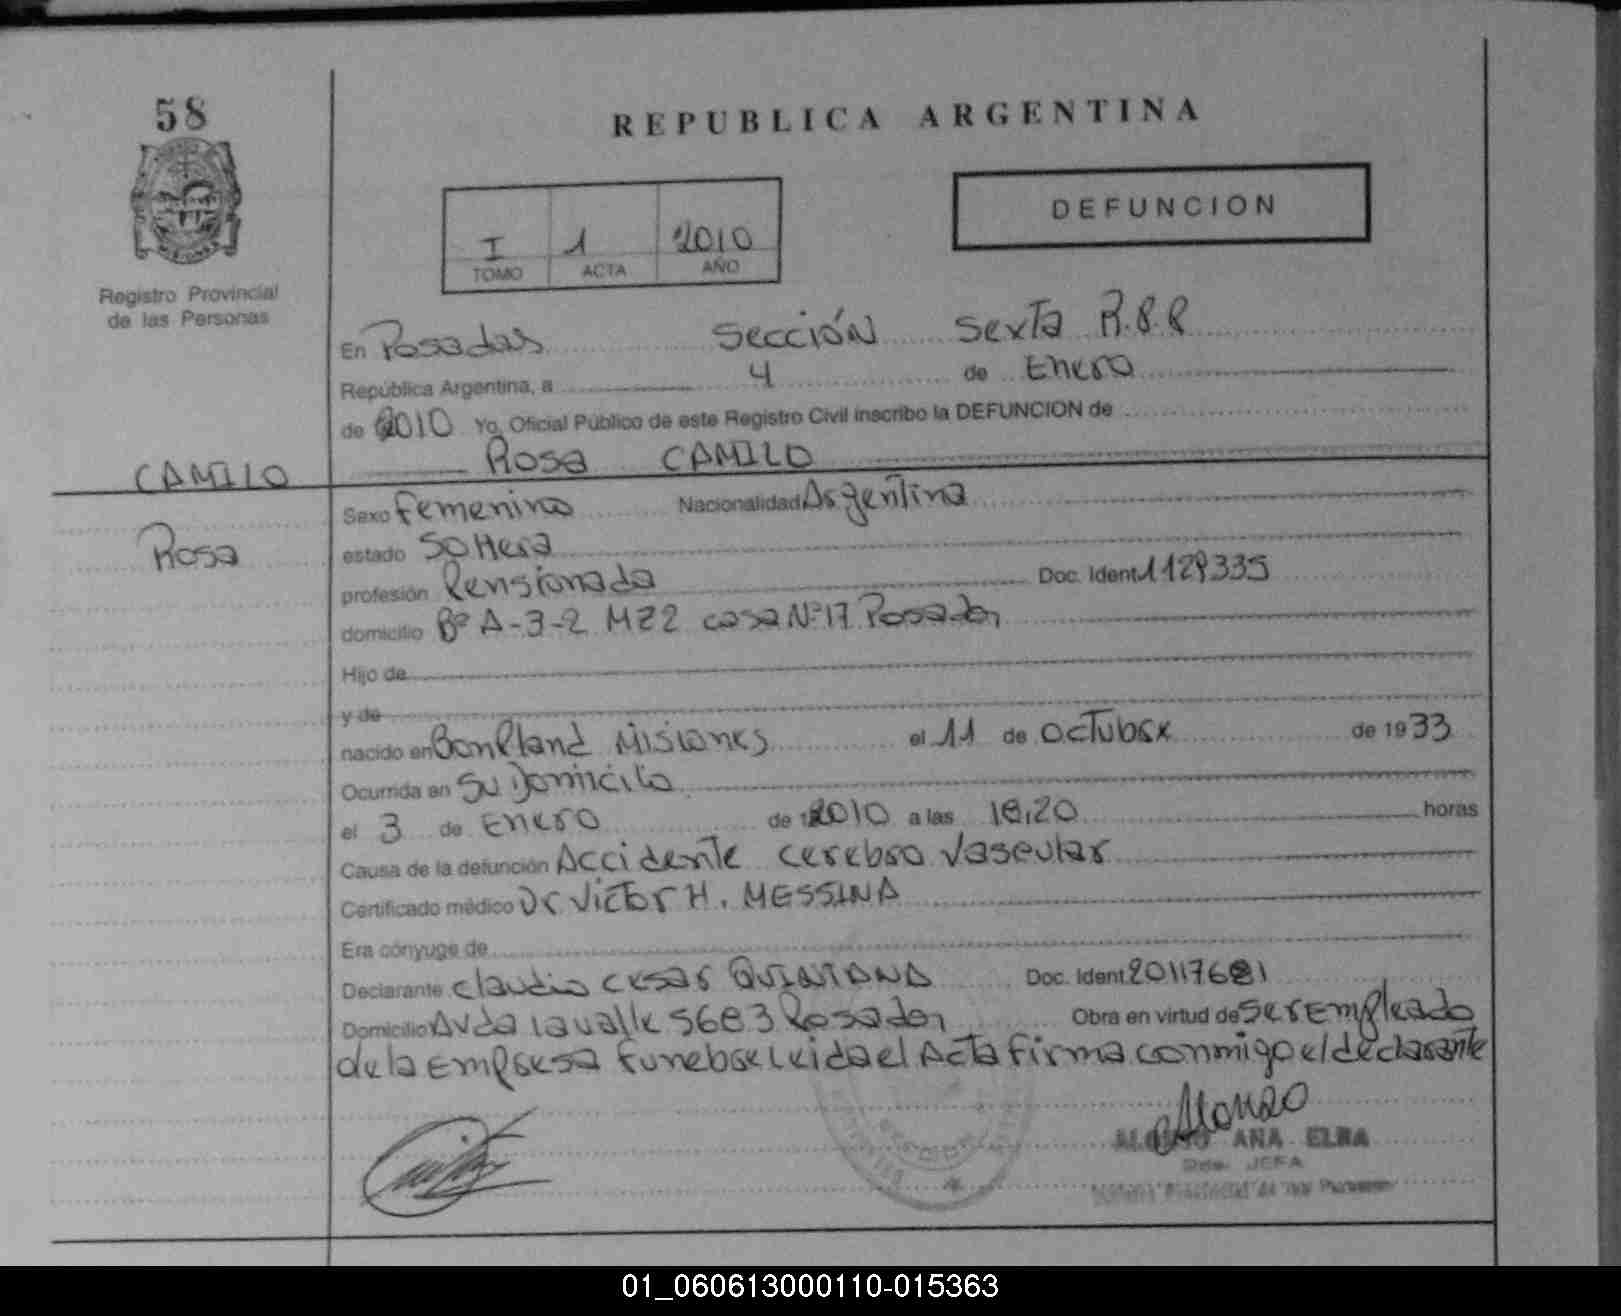 58
REPUBLICA ARGENTINA
DEFUNCION
I 1 2010
TOMO ACTA AÑO
Registro Provincial
de las Personas
En Posadas Sección Sexta R.P.P
República Argentina, a 4 de Enero
de 2010 Yo, Oficial Público de este Registro Civil inscribo la DEFUNCION de
Rosa CAMILO
CAMILO
Rosa
Sexo femenino Nacionalidad Argentina
estado Soltera
profesión Pensionada Doc. Ident 1129335
domicilio Bº A-3-2 MZ2 casa Nº17 Posadas
Hijo de
y de
nacido en Bonpland Misiones el 11 de octubre de 1933
Ocurrida en Su Domicilio
el 3 de Enero de 2010 a las 18,20 horas
Causa de la defunción Accidente cerebro Vascular
Certificado médico Dr Victor H. MESSINA
Era cónyuge de
Declarante Claudio Cesar QUINTANA Doc. Ident 20117681
Domicilio Avda lavalle 5683 Posadas Obra en virtud de ser Empleado
de la Empresa funebre Leida el Acta firma conmigo el declarante
Alonzo
ANA ELBA
JEFA
01_060613000110-015363